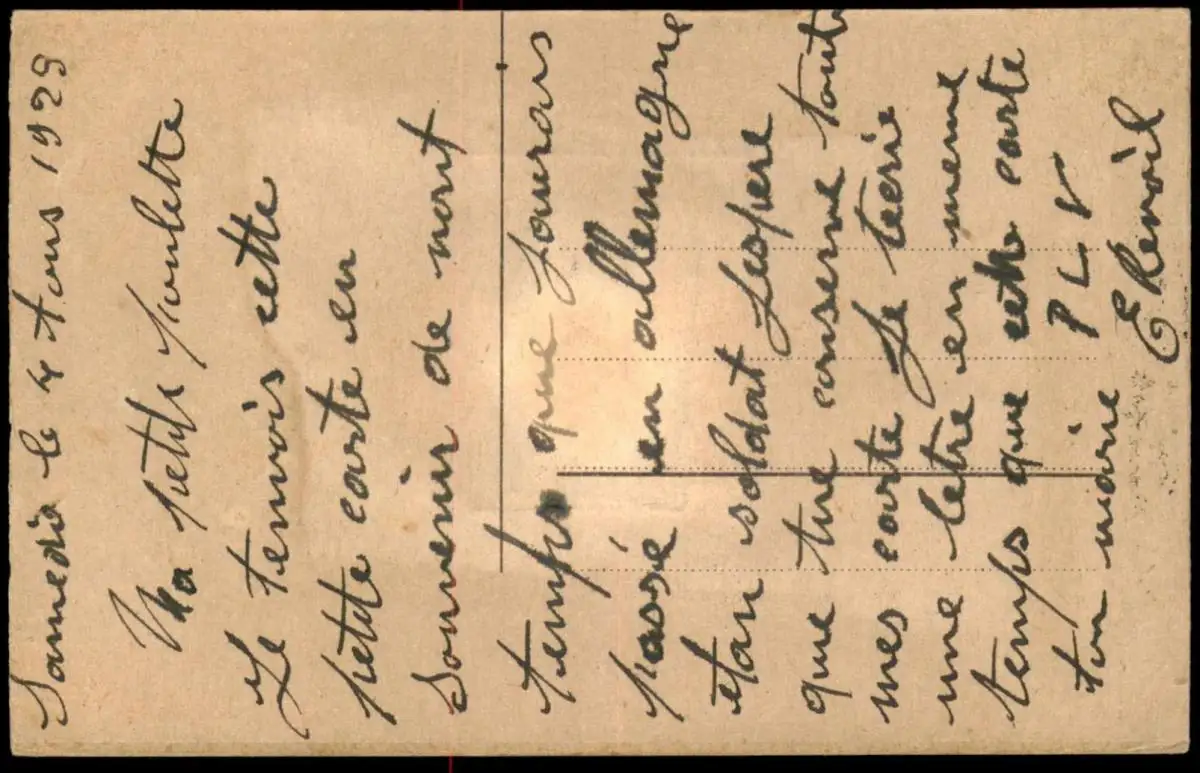 Samedis le 4 tous 1929
Ma petite poulette
Je tenvois cette
petite carte en
souvenir de mont
temps que jaurais
passé en allemagne
étan soldat jespere
que tue conserve toute
mes carte je técrie
une letre en meme
temps que cette carte
ton marie P L V
E Renoil